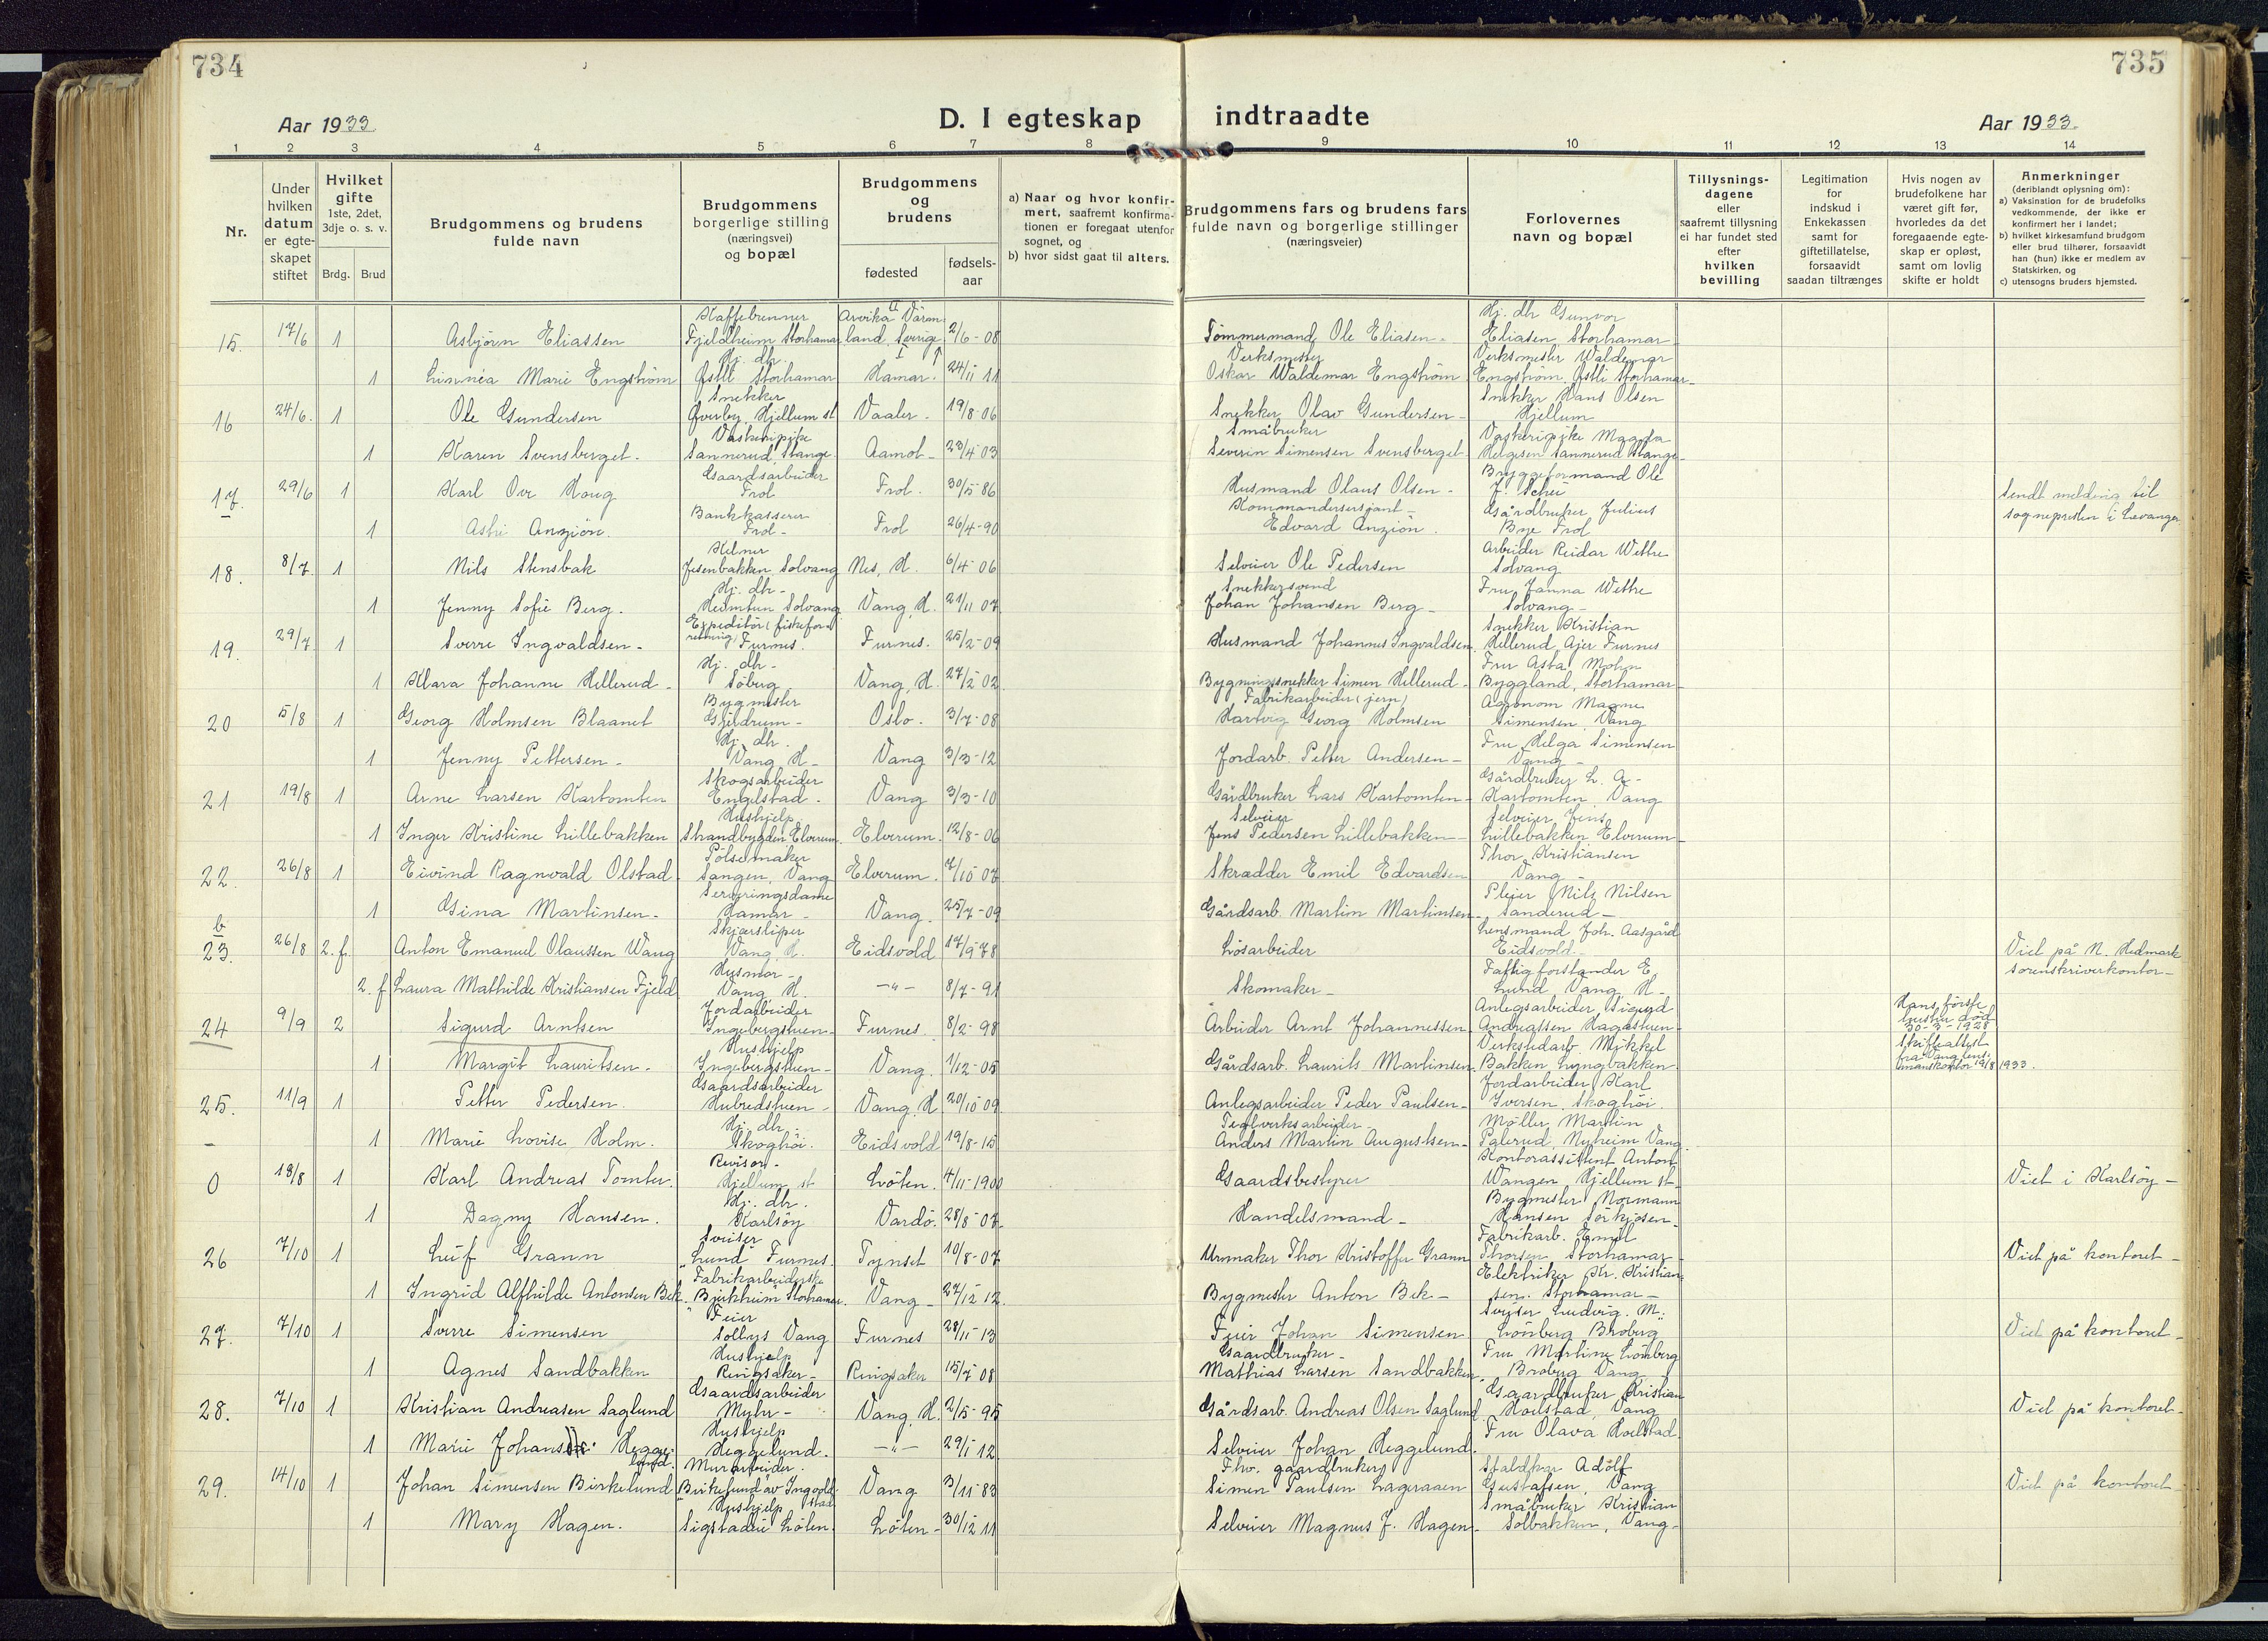 734
735
Aar 1933.
D. I egteskap indtraadte
Aar 1933.
1 2 3 4 5 6 7 8 9 10 11 12 13 14
Nr.
Under hvilken datum er egteskapet stiftet
Hvilket gifte 1ste, 2det, 3dje o. s. v.
Brdg. Brud
Brudgommens og brudens fulde navn
Brudgommens borgerlige stilling (næringsvei) og bopæl
Brudgommens og brudens
fødested
fødsels-aar
a) Naar og hvor konfirmert, saafremt konfirmationen er foregaat utenfor sognet, og
b) hvor sidst gaat til alters.
Brudgommens fars og brudens fars fulde navn og borgerlige stillinger (næringsveier)
Forlovernes navn og bopæl
Tillysningsdagene eller saafremt tillysning ei har fundet sted efter hvilken bevilling
Legitimation for indskud i Enkekassen samt for giftetillatelse, forsaavidt saadan tiltrænges
Hvis nogen av brudefolkene har været gift før, hvorledes da det foregaaende egteskap er opløst, samt om lovlig skifte er holdt
Anmerkninger (deriblandt oplysning om):
a) Vaksination for de brudefolks vedkommende, der ikke er konfirmert her i landet;
b) hvilket kirkesamfund brudgom eller brud tilhører, forsaavidt han (hun) ikke er medlem av Statskirken, og
c) utensogns bruders hjemsted.
15. 17/6 1 Asbjörn Eliassen Kaffebrenner Fjeldheim Storhamar Arvika Värmland, Sverige 2/6-08 Tömmermand Ole Eliasen - Hj. dtr Gunvor Eliasen Storhamar
1 Linnéa Marie Engström Hj. dtr. Østli Storhamar Hamar. 24/11 11 Verksmester Oskar Waldemar Engström Verksmester Waldemar Engström, Østli Storhamar -
16 24/6. 1 Ole Gundersen Snekker Øverby, Hjellum st Vaaler - 19/8-06 Snekker Olav Gundersen - Snekker Hans Olsen Hjellum
1 Karen Svensberget. Vaskeripike Sannerud, Stange Aamot - 23/4-03 Småbruker Severin Simensen Svensberget Vaskeripike Magda Helgesen Sannerud Stange -
17. 29/6 1 Karl Ove Haug Gaardsarbeider Frol Frol. 30/5-86 Husmand Olaus Olsen - Byggeformand Ole J. Scheï Sendt melding til sognepresten i Levanger
1 Astri Anziön. Bankkasserer Frol - Frol 26/4-90 Kommandersersjant - Edvard Anziön. Gårdbruker Julius Bye Frol
18. 8/7 1 Nils Stensbak Kelner Jesenbakken, Solvang Nes, H. 6/4-06 Selveier Ole Pedersen Arbeider Reidar Wethe Solvang
1 Jenny Sofie Berg. Hj. dtr - Heimtun Solvang Vang, H. 21/11 07 Snekkersvend Johan Johansen Berg - Fru Janna Wethe Solvang -
19. 29/7 1 Sverre Ingvaldsen - Expeditör (fiskeforretning) Furnes. Furnes. 25/2-09 Husmand Johannes Ingvaldsen. Snekker Kristian Hellerud Ajer Furnes
1 Klara Johanne Hellerud - Hj. dtr - Söberg Vang, H. 27/2 02 Bygningssnekker Simen Hellerud - Fru Asta Mohn Byggland, Storhamar -
20 5/8 1 Georg Holmsen Blaanet Bygmester Gjeldrum - Oslo. 3/7-08 Fabrikarbeider (jern) Hartvig Georg Holmsen Agronom Magne Simensen, Vang
1 Jenny Pettersen - Hj. dtr. Vang H - Vang 3/3-12 Jordarb. Petter Andersen - Fru Helga Simensen Vang -
21 19/8 1 Arne Larsen Kartomten Skogsarbeider Engelstad - Vang 3/3-10 Gårdbruker Lars Kartomten - Gårdbruker L. A - Kartomten Vang
1 Inger Kristine Lillebakken Hushjelp Strandbygden Elverum. Elverum. 12/8-06 Selveier Jens Pedersen Lillebakken - Selveier Jens Lillebakken Elverum -
22. 26/8 1 Eivind Ragnvald Olstad Pölsemaker Sangen, Vang Elverum. 7/10 07 Skrædder Emil Edvardsen Thor Kristiansen Vang -
1 Gina Martinsen - Serveringsdame Hamar - Vang. 25/7-09 Gårdsarb. Martin Martinsen - Pleier Nils Nilsen Sanderud -
b
23. 26/8 2. f. Anton Emanuel Olaussen Wang Skjærsliper Vang, H. Eidsvold 17/9-78 Lösarbeider Lensmand Joh. Aasgård Eidsvold. Viet på N. Hedmark sorenskriverkontor -
2. f. Laura Mathilde Kristiansen Fjeld Husmor - Vang H. -"- 8/7-91 Skomaker - Fattigforstander E. Lund Vang H -
24 9/9 2 Sigurd Arntsen Jordarbeider Ingebergstuen - Furnes. 8/2-98 Arbeider Arnt Johannessen Anlegsarbeider Sigurd Andreassen Hagastuen - Hans første hustru död 30-3-1928 Skifteattest fra Vang lensmanskontor 19/8 1933.
1 Margit Lauritsen - Hushjelp Ingebergstuen - Vang. 1/12-05 Gårdsarb. Laurits Martinsen. Verkstedarb. Mikkel Bakken Lyngbakken
25. 11/9 1 Petter Pedersen. Gaardsarbeider Hubredstuen - Vang, H 20/10 09 Anlegsarbeider Peder Paulsen - Jordarbeider Karl Iversen, Skoghöi.
- 1 Marie Lovise Holm. Hj. dtr. Skoghöi. Eidsvold 19/8-15 Teglverksarbeider - Anders Martin Augustsen - Möller Martin Palerud, Nyheim Vang
0 19/8 1 Karl Andreas Tomter. Revisor - Hjellum st Löten. 4/11-1900 Gaardsbestyrer Kontorassistent Anton Wangen Hjellum st - Viet i Karlsöy -
1 Dagny Hansen. Hj. dtr. Karlsöy Vardö. 28/8-07. Handelsmand - Bygmester Normann Hansen Sörkjosen -
26 7/10 1 Leif Grann Sveiser "Lund" Furnes. Tynset 10/8-07 Urmaker Thor Kristoffer Grann Fabrikarb. Egmil Thorsen, Storhamar Viet på kontoret -
1 Ingrid Alfhilde Antonsen Bek. Fabrikarbeiderske "Bjerkheim" Storhamar. Vang - 27/12 12. Bygmester Anton Bek - Elektriker Kr. Kristiansen. Storhamar -
27. 7/10 1 Sverre Simensen Feier Sollys Vang Furnes 28/11-13 Feier Johan Simensen Sveiser Ludvig. M. Lönberg Broberg Viet på kontoret -
1 Agnes Sandbakken Hushjelp Ringsaker - Ringsaker 15/7 08 Gaardbruker - Mathias Larsen Sandbakken. Fru Martine Lönberg Broberg Vang -
28. 7/10 1 Kristian Andreasen Saglund Gaardsarbeider Myhr - Vang, H. 2/5-95 Gårdsarb. Andreas Olsen Saglund Gaardbruker Kristian Hoelstad, Vang Viet på kontoret -
1 Marie Heggelund. Hushjelp Heggelund. -"- 29/1 12 Selveier Johan Heggelund. Fru Olava Hoelstad.
29. 14/10 1 Johan Simensen Birkelund Murarbeider. "Birkelund" av Ingvoldstad Vang 3/11-83 Fhv. gaardbruker Simen Paulsen Lageraaen Staldkar Adolf Gustafsen, Vang Viet på kontoret
1 Mary Hagen. Hushjelp Löten. Löten - 30/12 11 Selveier Magnus J. Hagen - Småbruker Kristian Solbakken, Vang -